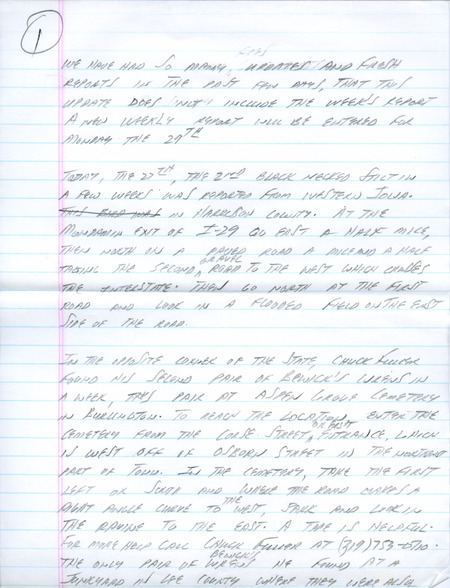 1
WE HAVE HAD SO MANY UPDATES AND FRESH
REPORTS IN THE PAST FEW DAYS, THAT THIS
UPDATE DOES NOT INCLUDE THE WEEK'S REPORT
A NEW WEEKLY REPORT WILL BE ENTERED FOR
MONDAY THE 29TH
TODAY, THE 27TH, THE 2ND BLACK NECKED STILT IN
A FEW WEEKS WAS REPORTED FROM WESTERN IOWA.
THIS BIRD WAS IN HARRISON COUNTY. AT THE
MONDAMIN EXIT OF I-29 GO EAST A HALF MILE,
THEN NORTH ON A PAVED ROAD A MILE AND A HALF
TAKING THE SECOND GRAVEL ROAD TO THE WEST WHICH CROSSES
THE INTERSTATE. THEN GO NORTH AT THE FIRST
ROAD AND LOOK IN A FLOODED FIELD ON THE EAST
SIDE OF THE ROAD.
IN THE OPPOSITE CORNER OF THE STATE, CHUCK FULLER
FOUND HIS SECOND PAIR OF BEWICK'S WRENS IN
A WEEK, THIS PAIR AT ASPEN GROVE CEMETERY
IN BURLINGTON. TO REACH THE LOCATION, ENTER THE
CEMETERY FROM THE STREET, OR EAST ENTRANCE, WHICH
IS WEST OFF OF OSBORN STREET IN THE NORTHERN
PART OF TOWN. IN THE CEMETERY, TAKE THE FIRST
LEFT OR SOUTH AND WHERE THE ROAD MAKES A
RIGHT ANGLE CURVE TO THE WEST, PARK AND LOOK IN
THE RAVINE TO THE EAST. A TAPE IS HELPFUL.
FOR MORE HELP CALL CHUCK FULLER AT (319) 753-
THE ONLY PAIR OF BEWICK'S WRENS HE FOUND AT A
JUNKYARD IN LEE COUNTY WHERE THEY WERE ALSO